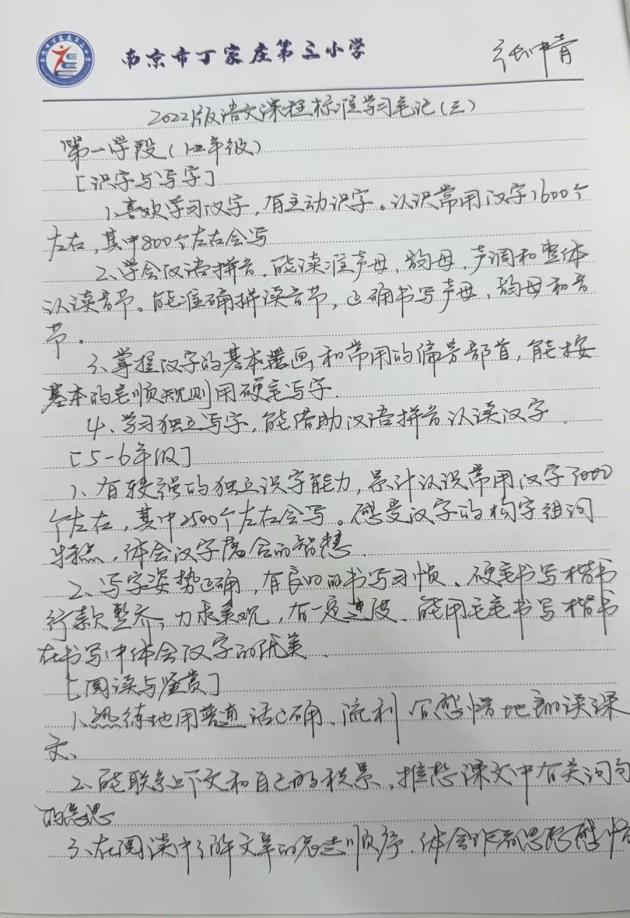 南京市丁家庄第三小学
2022版语文课程标准学习笔记(三)
第一学段(1-2年级)
[识字与写字]
1、喜欢学习汉字,有主动识字。认识常用汉字1600个
左右,其中800个左右会写
2、学会汉语拼音。能读准声母、韵母、声调和整体
认读音节。能准确拼读音节,正确书写声母、韵母和音
节。
3、掌握汉字的基本笔画和常用的偏旁部首,能按
基本的笔顺规则用硬笔写字.
4、学习独立写字,能借助汉语拼音认读汉字.
[5-6年级]
1、有较强的独立识字能力,累计认识常用汉字3000
个左右,其中2500个左右会写。感受汉字的构字组词
特点,体会汉字蕴含的智慧.
2、写字姿势正确,有良好的书写习惯、硬笔书写楷书
行款整齐,力求美观,有一定速度.能用毛笔书写楷书
在书写中体会汉字的优美.
[阅读与鉴赏]
1、熟练地用普通话正确、流利、有感情地朗读课
文、
2、能联系上下文和自己的积累,推想课文中有关词句
的意思
3、在阅读中了解文章的表达顺序、体会作者思想感情